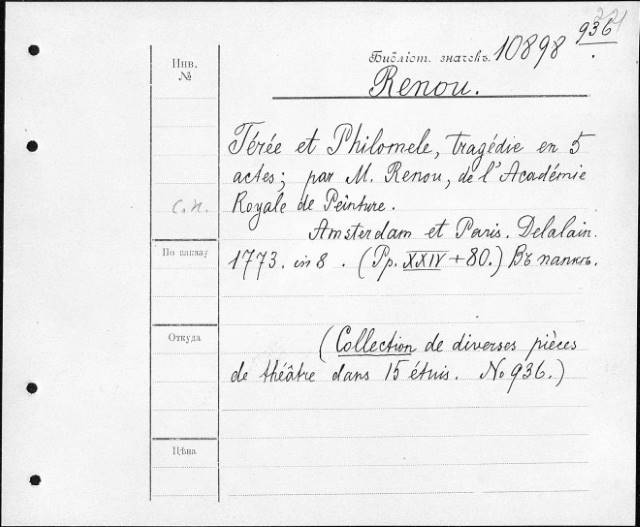 936
Инв.
№
Библіот. значекъ. 10898
Renou.
Térée et Philomele, tragédie en 5
actes; par M. Renou, de l'Académie
С.п.
Royale de Peinture.
Amsterdam et Paris. Delalain.
По шкапу
1773. in 8. (Pp. XXIV + 80.) Въ папкѣ.
Откуда
(Collection de diverses pièces
de théâtre dans 15 étuis. No 936.)
Цѣна